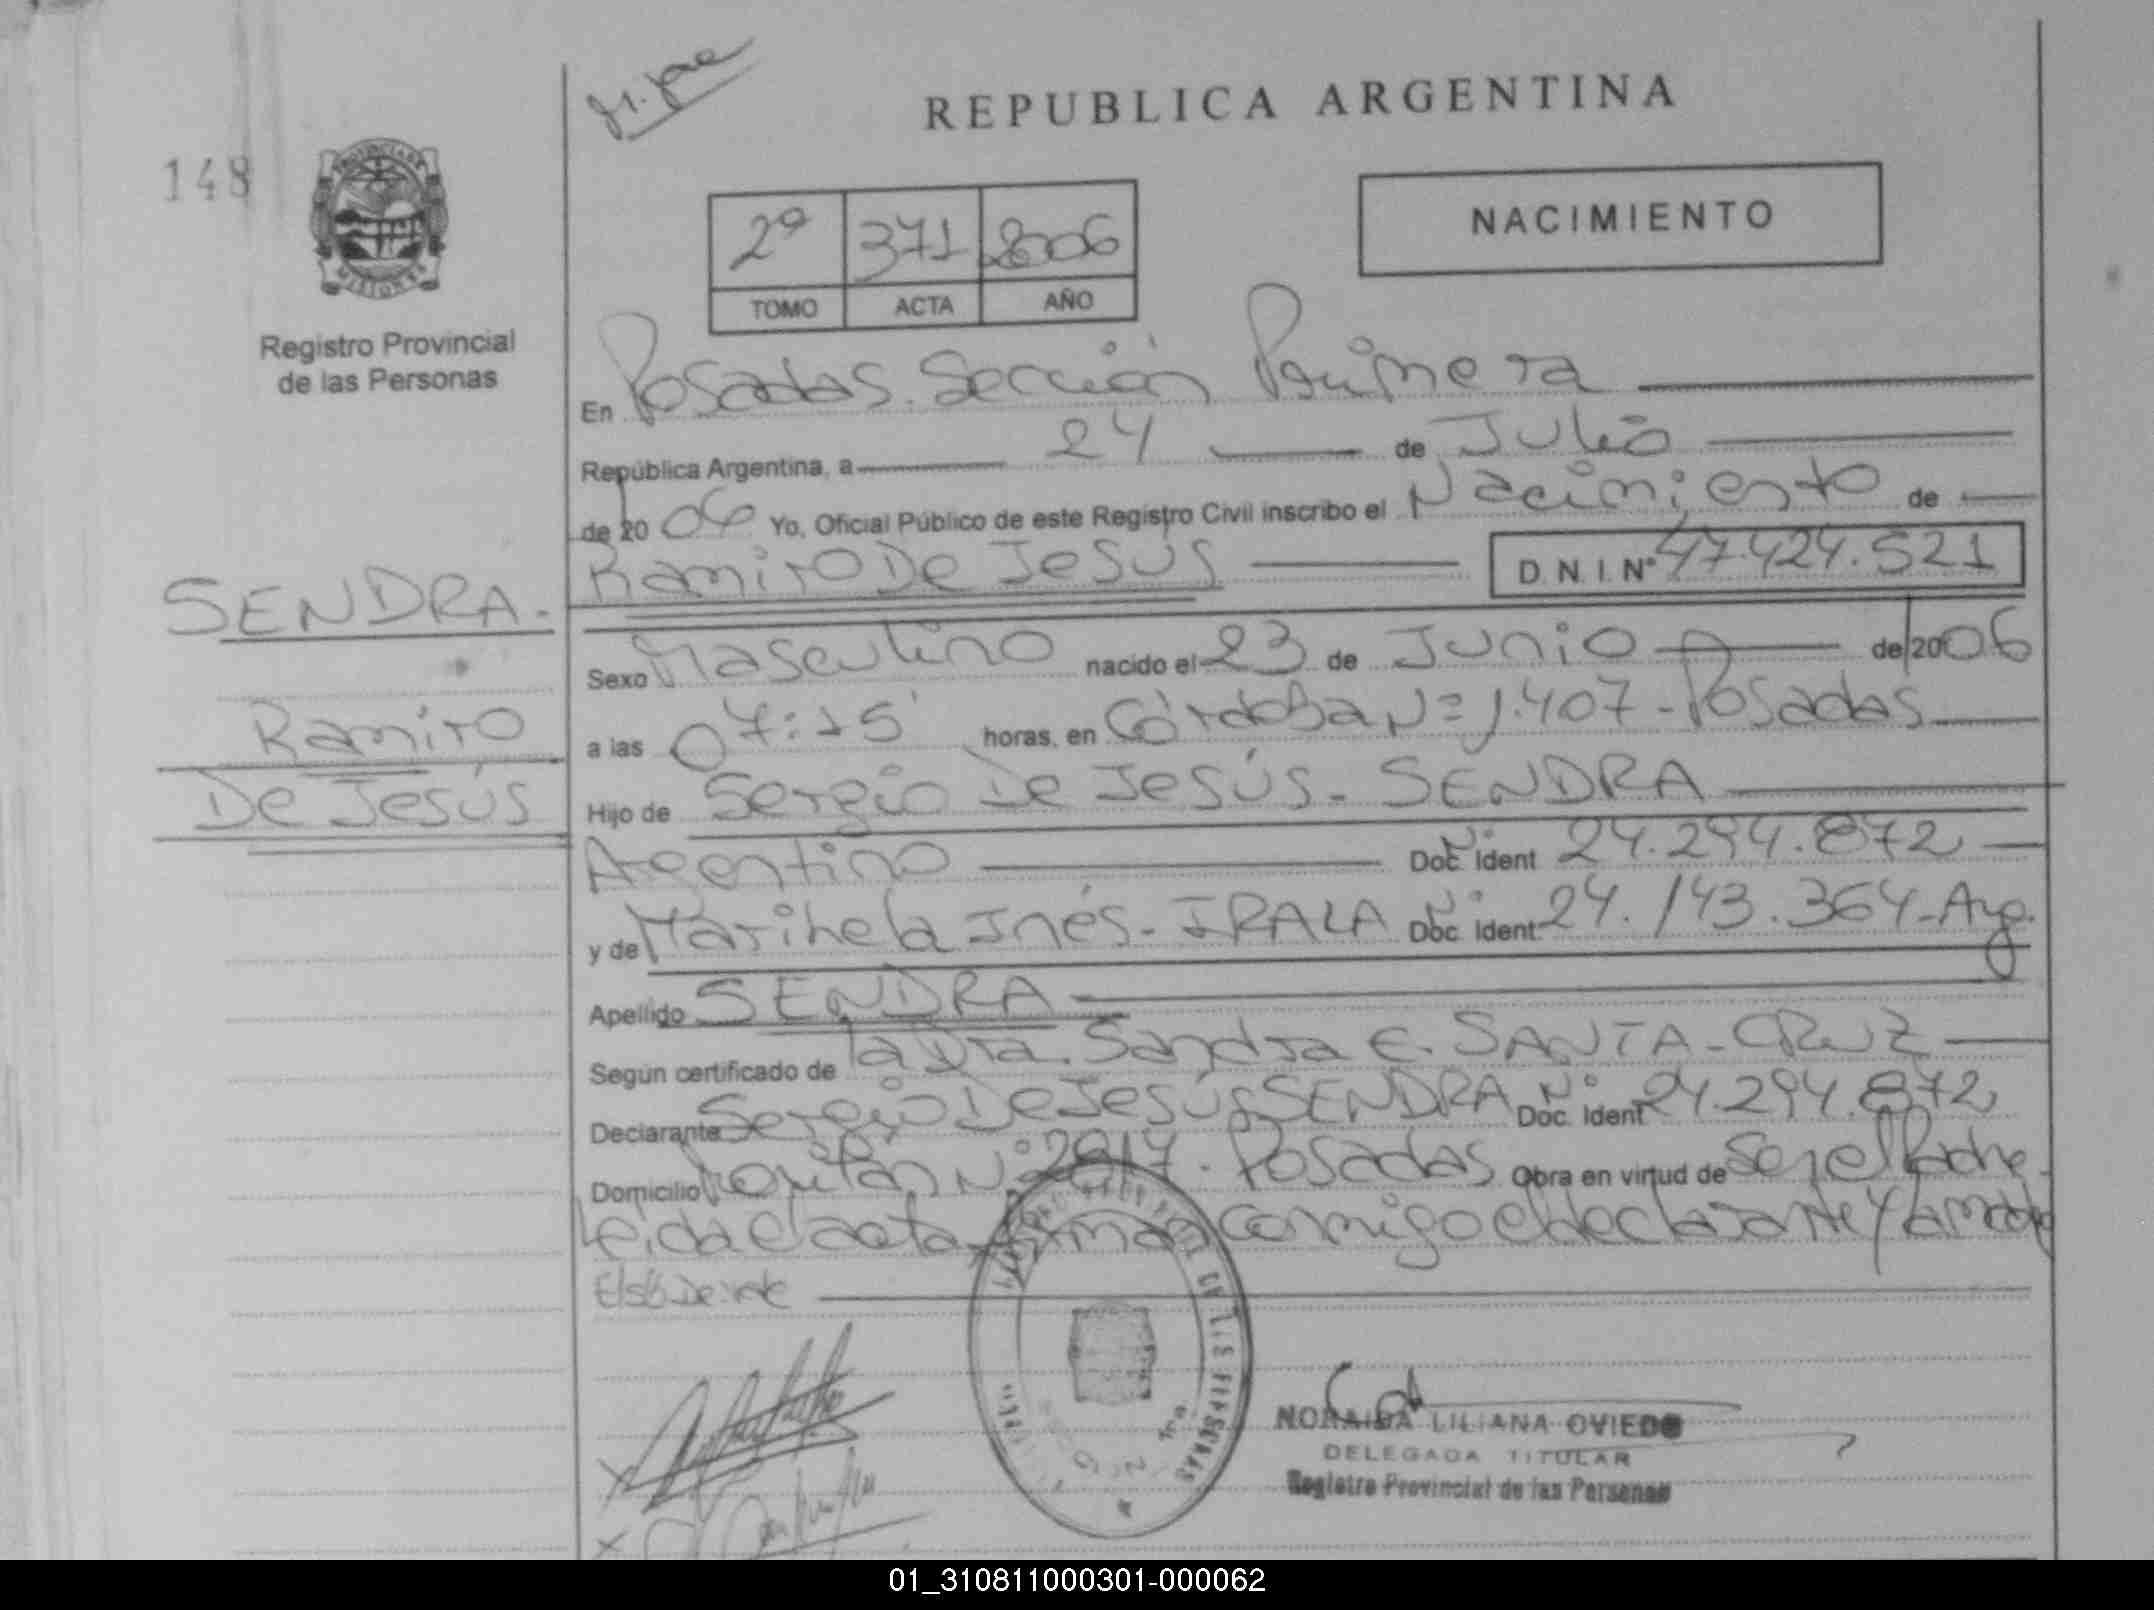 REPUBLICA ARGENTINA
148
PROVINCIA DE
MISIONES
Registro Provincial
de las Personas
2º 371 2006
TOMO ACTA AÑO
NACIMIENTO
En Posadas. Sección Primera
República Argentina, a 24 de Julio
de 2006 Yo, Oficial Público de este Registro Civil inscribo el Nacimiento de
Ramiro De Jesús D.N.I. Nº 47.424.521
SENDRA.
Ramiro
De Jesús
Sexo Masculino nacido el 23 de Junio de 2006
a las 07:15' horas, en Córdoba Nº 1.407 - Posadas
Hijo de Sergio De Jesús - SENDRA
Agentino Doc. Ident Nº 24.294.872
y de Marihela Inés - IRALA Doc. Ident. Nº 24.143.364 - Arg.
Apellido SENDRA
Según certificado de la Dra. Sandra E. SANTA - CRUZ
Declarante Sergio De Jesús SENDRA Doc. Ident Nº 24.294.872
Domicilio Nº 2917 - Posadas Obra en virtud de ser el Padre.
Leida el acta firman conmigo el declarante y la madre
NORAIDA LILIANA OVIEDO
DELEGADA TITULAR
Registro Provincial de las Personas
01_310811000301-000062